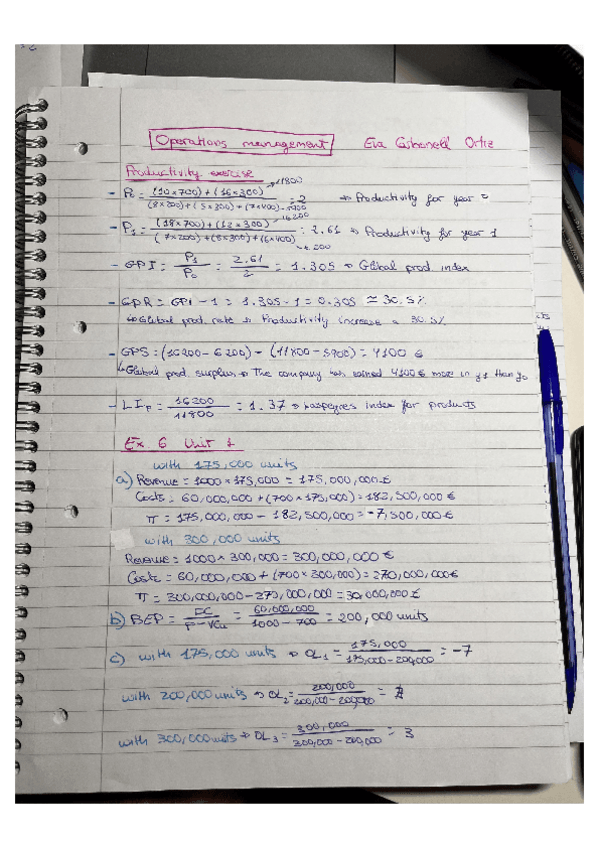 Operations management Eva Carbonell Ortiz
Productivity exercise
- P₀ = (10×700)+(16×300) → 11800 / (8×200)+(5×300)+(7×400) → 5900 = 2 ⇒ Productivity for year 0
- P₁ = (18×700)+(12×300) → 16200 / (7×200)+(8×300)+(6×400) → 6200 = 2.61 ⇒ Productivity for year 1
- GPI = P₁/P₀ = 2.61/2 = 1.305 ⇒ Global prod. index
- GPR = GPI - 1 = 1.305 - 1 = 0.305 ≃ 30.5%
↳ Global prod. rate ⇒ Productivity increase a 30.5%
- GPS = (16200 - 6200) - (11800 - 5900) = 4100 €
↳ Global prod. surplus ⇒ The company has earned 4100 € more in y1 than y0
- LIp = 16200/11800 = 1.37 ⇒ Laspeyres index for products
Ex. 6 Unit 1
with 175,000 units
a) Revenue = 1000 × 175,000 = 175,000,000 €
Costs = 60,000,000 + (700 × 175,000) = 182,500,000 €
π = 175,000,000 - 182,500,000 = -7,500,000 €
with 300,000 units
Revenue = 1000 × 300,000 = 300,000,000 €
Costs = 60,000,000 + (700 × 300,000) = 270,000,000 €
π = 300,000,000 - 270,000,000 = 30,000,000 €
b) BEP = FC / P - VCu = 60,000,000 / 1000 - 700 = 200,000 units
c) with 175,000 units ⇒ OL₁ = 175,000 / 175,000 - 200,000 = -7
with 200,000 units ⇒ OL₂ = 200,000 / 200,000 - 200,000 =
with 300,000 units ⇒ OL₃ = 300,000 / 300,000 - 200,000 = 3